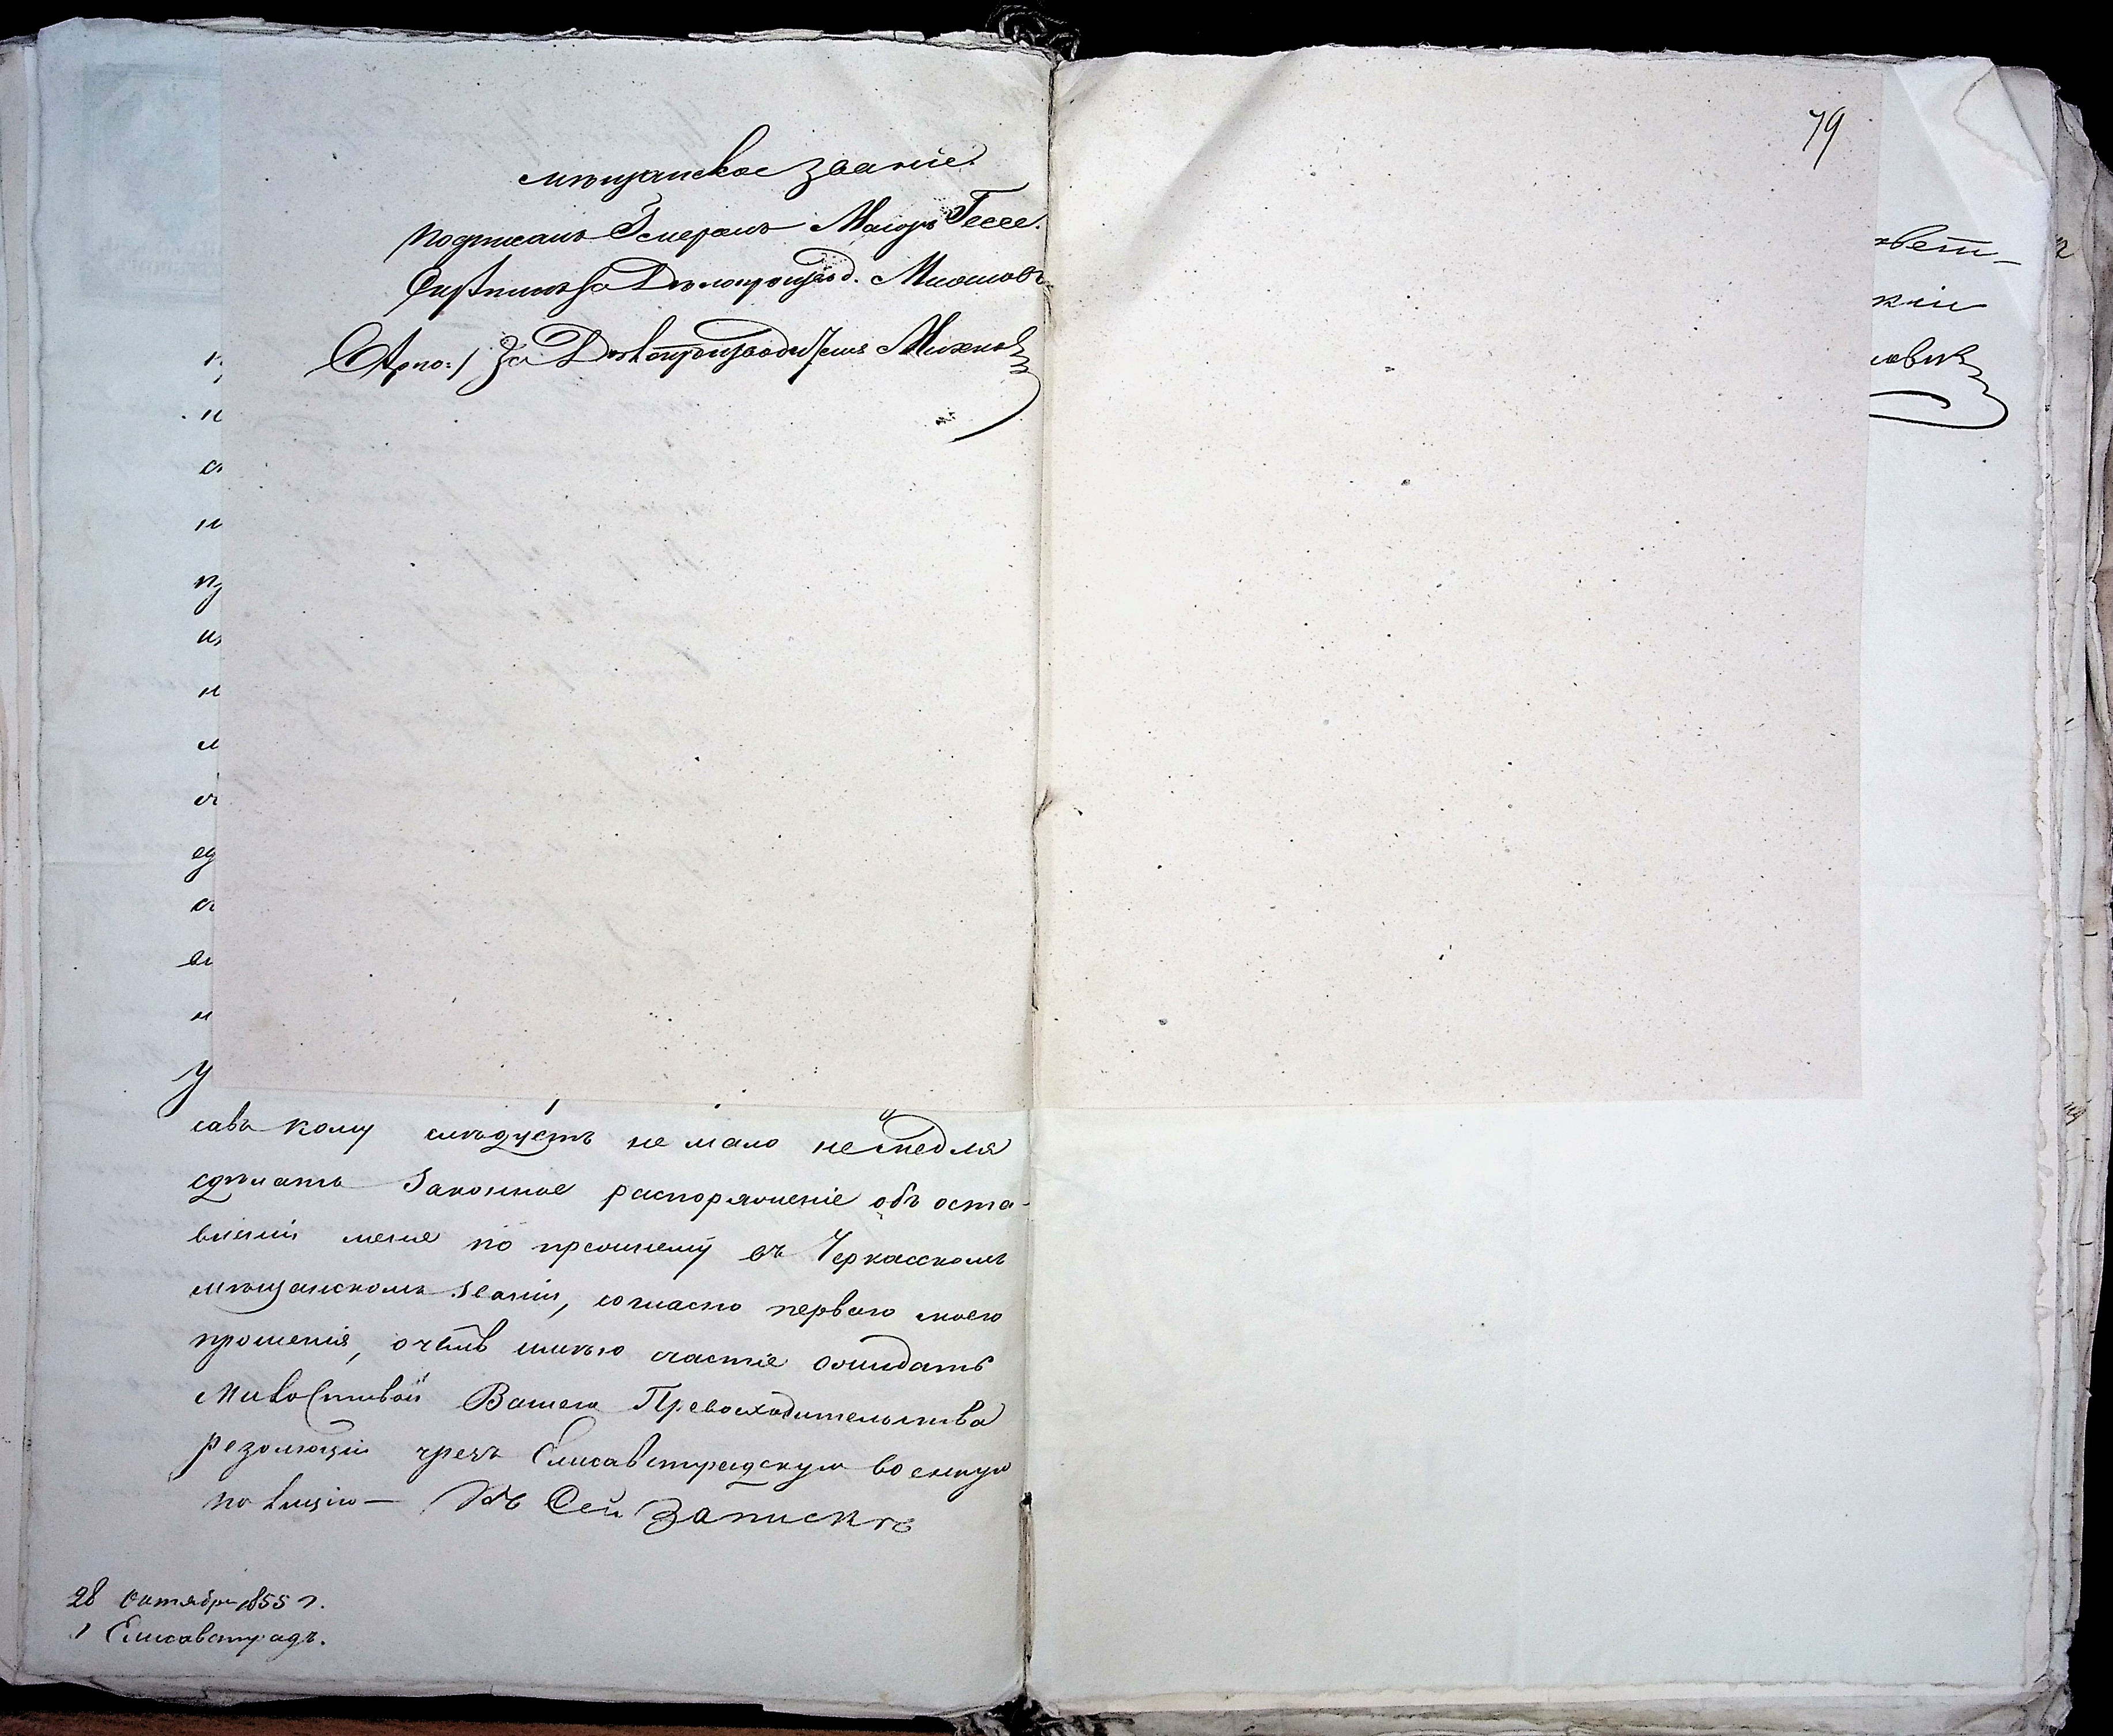 79
мѣщанское званіе.
Подписалъ Генералъ Маіоръ Гессе.
Скрѣпилъ за Дѣлопроизвод.
за Дѣлопроизводителя
кому слѣдуетъ не мало немедля
сдѣлать Законное распоряженіе объ оста-
вленіи меня по прежнему въ Черкасскомъ
мѣщанскомъ званіи, согласно первого моего
прошенія, о чемъ имѣю счастіе ожидать
Милостивой Вашего Превосходительства
резолюціи чрезъ Елисаветградскую военную
полицію — Къ Сей Запискѣ
28 октября 1855 г.
г Елисаветградъ.